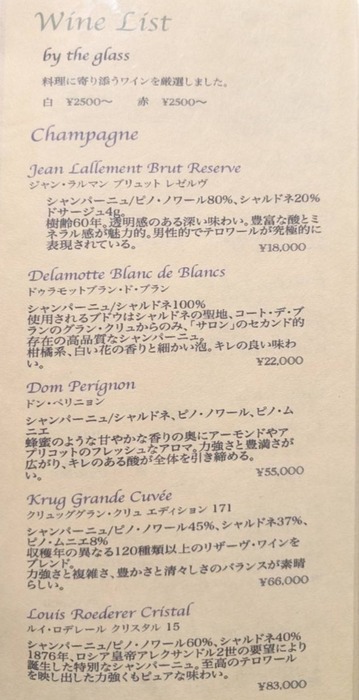 Wine List
by the glass
料理に寄り添うワインを厳選しました。
白 ¥2500～ 赤 ¥2500～
Champagne
Jean Lallement Brut Reserve
ジャン・ラルマン ブリュット レゼルヴ
シャンパーニュ/ピノ・ノワール80%、シャルドネ20%
ドサージュ4g。
樹齢60年。透明感のある深い味わい。豊富な酸とミ
ネラル感が魅力的。男性的でテロワールが究極的に
表現されている。
¥18,000
Delamotte Blanc de Blancs
ドゥラモットブラン・ド・ブラン
シャンパーニュ/シャルドネ100%
使用されるブドウはシャルドネの聖地、コート・デ・ブ
ランのグラン・クリュからのみ、「サロン」のセカンド的
存在の高品質なシャンパーニュ。
柑橘系、白い花の香りと細かい泡。キレの良い味わ
い。
¥22,000
Dom Perignon
ドン・ペリニョン
シャンパーニュ/シャルドネ、ピノ・ノワール、ピノ・ム
ニエ
蜂蜜のような甘やかな香りの奥にアーモンドやア
プリコットのフレッシュなアロマ。力強さと豊満さが
広がり、キレのある酸が全体を引き締める。
い。
¥55,000
Krug Grande Cuvée
クリュッググラン・クリュ エディション 171
シャンパーニュ/ピノ・ノワール45%、シャルドネ37%、
ピノ・ムニエ8%
収穫年の異なる120種類以上のリザーヴ・ワインを
ブレンド。
力強さと複雑さ、豊かさと清々しさのバランスが素晴
らしい。
¥66,000
Louis Roederer Cristal
ルイ・ロデレール クリスタル 15
シャンパーニュ/ピノ・ノワール60%、シャルドネ40%
1876年、ロシア皇帝アレクサンドル2世の要望により
誕生した特別なシャンパーニュ。至高のテロワール
を映し出した力強くもピュアな味わい。
¥83,000